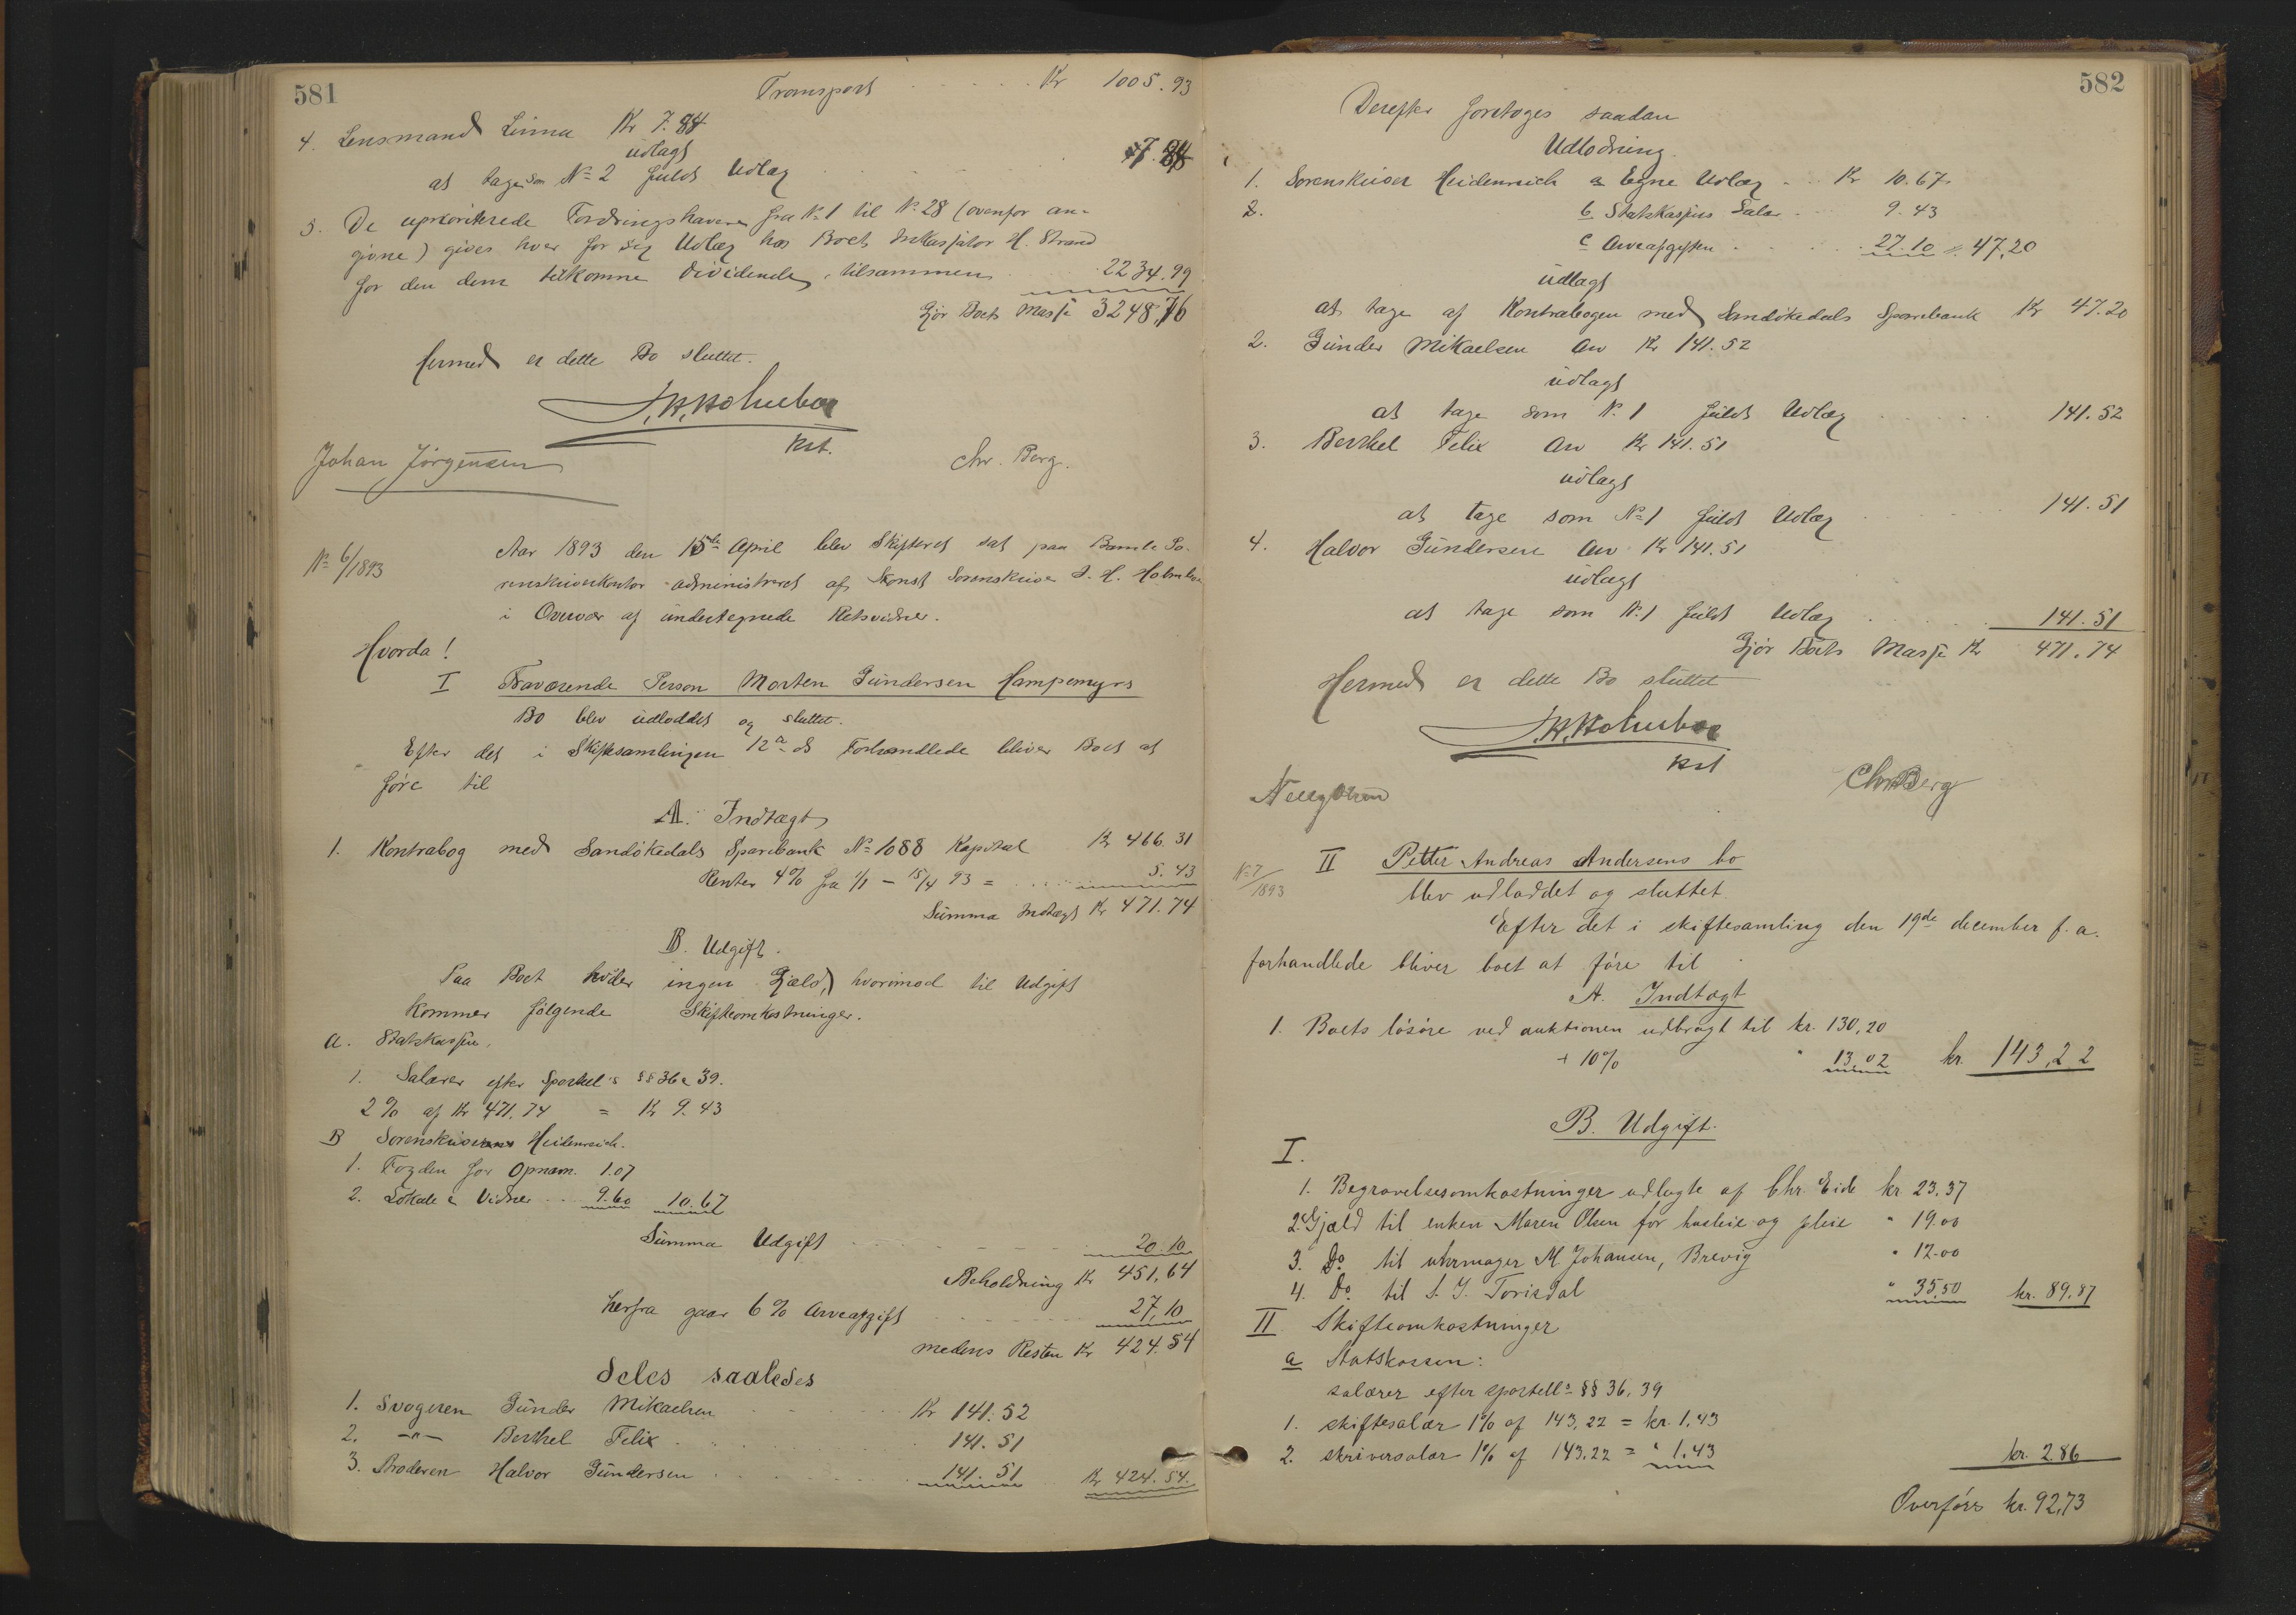 581
Transport Kr 1005.93
4. Lensmand Linna Kr 7.84
udlagt
at tage som No 2 fuldt Udlæg 7.84
5. De uprioriterede Fordringshavere fra No 1 til No 28 (ovenfor an-
givne) gives hver for sig Udlæg hos Boets Inkassator H. Strand
for den dem tilkomne Dividende, tilsammen 2234.99
Gjør Boets Masse 3248,76
Hermed er dette Bo sluttet.
J.H.Holmboe
kst.
Johan Jörgensen
Chr. Berg.
No 6/1893
Aar 1893 den 15de April blev Skifteret sat paa Bamle So-
renskriverkontor administreret af Konst Sorenskriver J. H. Holmboe
i Overvær af undertegnede Retsvidner.
Hvorda!
I Fraværende Person Morten Gundersen Hampemyrs
Bo blev udloddet og sluttet.
Efter det i Skiftesamlingen 12te ds Forhandlede bliver Boet at
føre til
A. Indtægt
1. Kontrabog med Sandökedals Sparebank No 1088 Kapital Kr 466.31
Renter 4% fra 1/1 - 15/4 93 = 5.43
Summa Indtægt Kr 471.74
B. Udgift.
Paa Boet hviler ingen Gjæld, hvorimod til Udgift
kommer følgende Skifteomkostninger.
a. Statskassen.
1. Salærer efter Sportel's §§ 36 & 39.
2% af Kr 471.74 = Kr 9.43
B Sorenskriver Heidenreich.
1. Fogden for Opnavn. 1.07
2. Lokale & Vidner 9.60 10.67
Summa Udgift 20.10
Beholdning Kr 451,64
herfra gaar 6% Arveafgift 27,10
medens Resten Kr 424.54
deles saaledes
1. Svogeren Gunder Mikaelsen Kr 141.52
2. -"- Berthel Felix 141.51
3. Broderen Halvor Gundersen 141.51 Kr 424.54.
582
Derefter foretoges saadan
Udlodning.
1. Sorenskriver Heidenreich a Egne Udlæg Kr 10.67
2. b Statskassens Salær 9.43
c Arveafgiften 27.10 47,20
udlagt
at tage af Kontrabogen med Sandökedals Sparebank Kr 47.20
2. Gunder Mikaelsen Arv Kr 141.52
udlagt
at tage som No 1 fuldt Udlæg 141.52
3. Berthel Felix Arv Kr 141.51
udlagt
at tage som No 1 fuldt Udlæg 141.51
4. Halvor Gundersen Arv Kr 141.51
udlagt
at tage som No 1 fuldt Udlæg 141.51
Gjør Boets Masse Kr 471.74
Hermed er dette Bo sluttet
J.H.Holmboe
kst
Chr Berg
No 7/1893
II Petter Andreas Andersens bo
blev udloddet og sluttet.
Efter det i skiftesamling den 19de december f. a.
forhandlede bliver boet at føre til
A. Indtægt
1. Boets løsøre ved auktionen udbragt til kr. 130,20
+ 10% " 13,02 kr. 143,22
B. Udgift.
I.
1. Begravelsesomkostninger udlagte af Chr. Eide kr. 23,37
2. Gjæld til enken Maren Olsen for husleie og pleie " 19.00
3. Do til uhrmager M Johansen, Brevig " 12.00
4. Do til S. J. Torisdal " 35,50 kr. 89,87
II Skifteomkostninger
a Statskassen:
salærer efter sportell: §§ 36, 39
1. skiftesalær 1% af 143,22 = kr. 1,43
2. skriversalær 1% af 143,22 = " 1.43
kr. 2.86
Overføres kr. 92,73